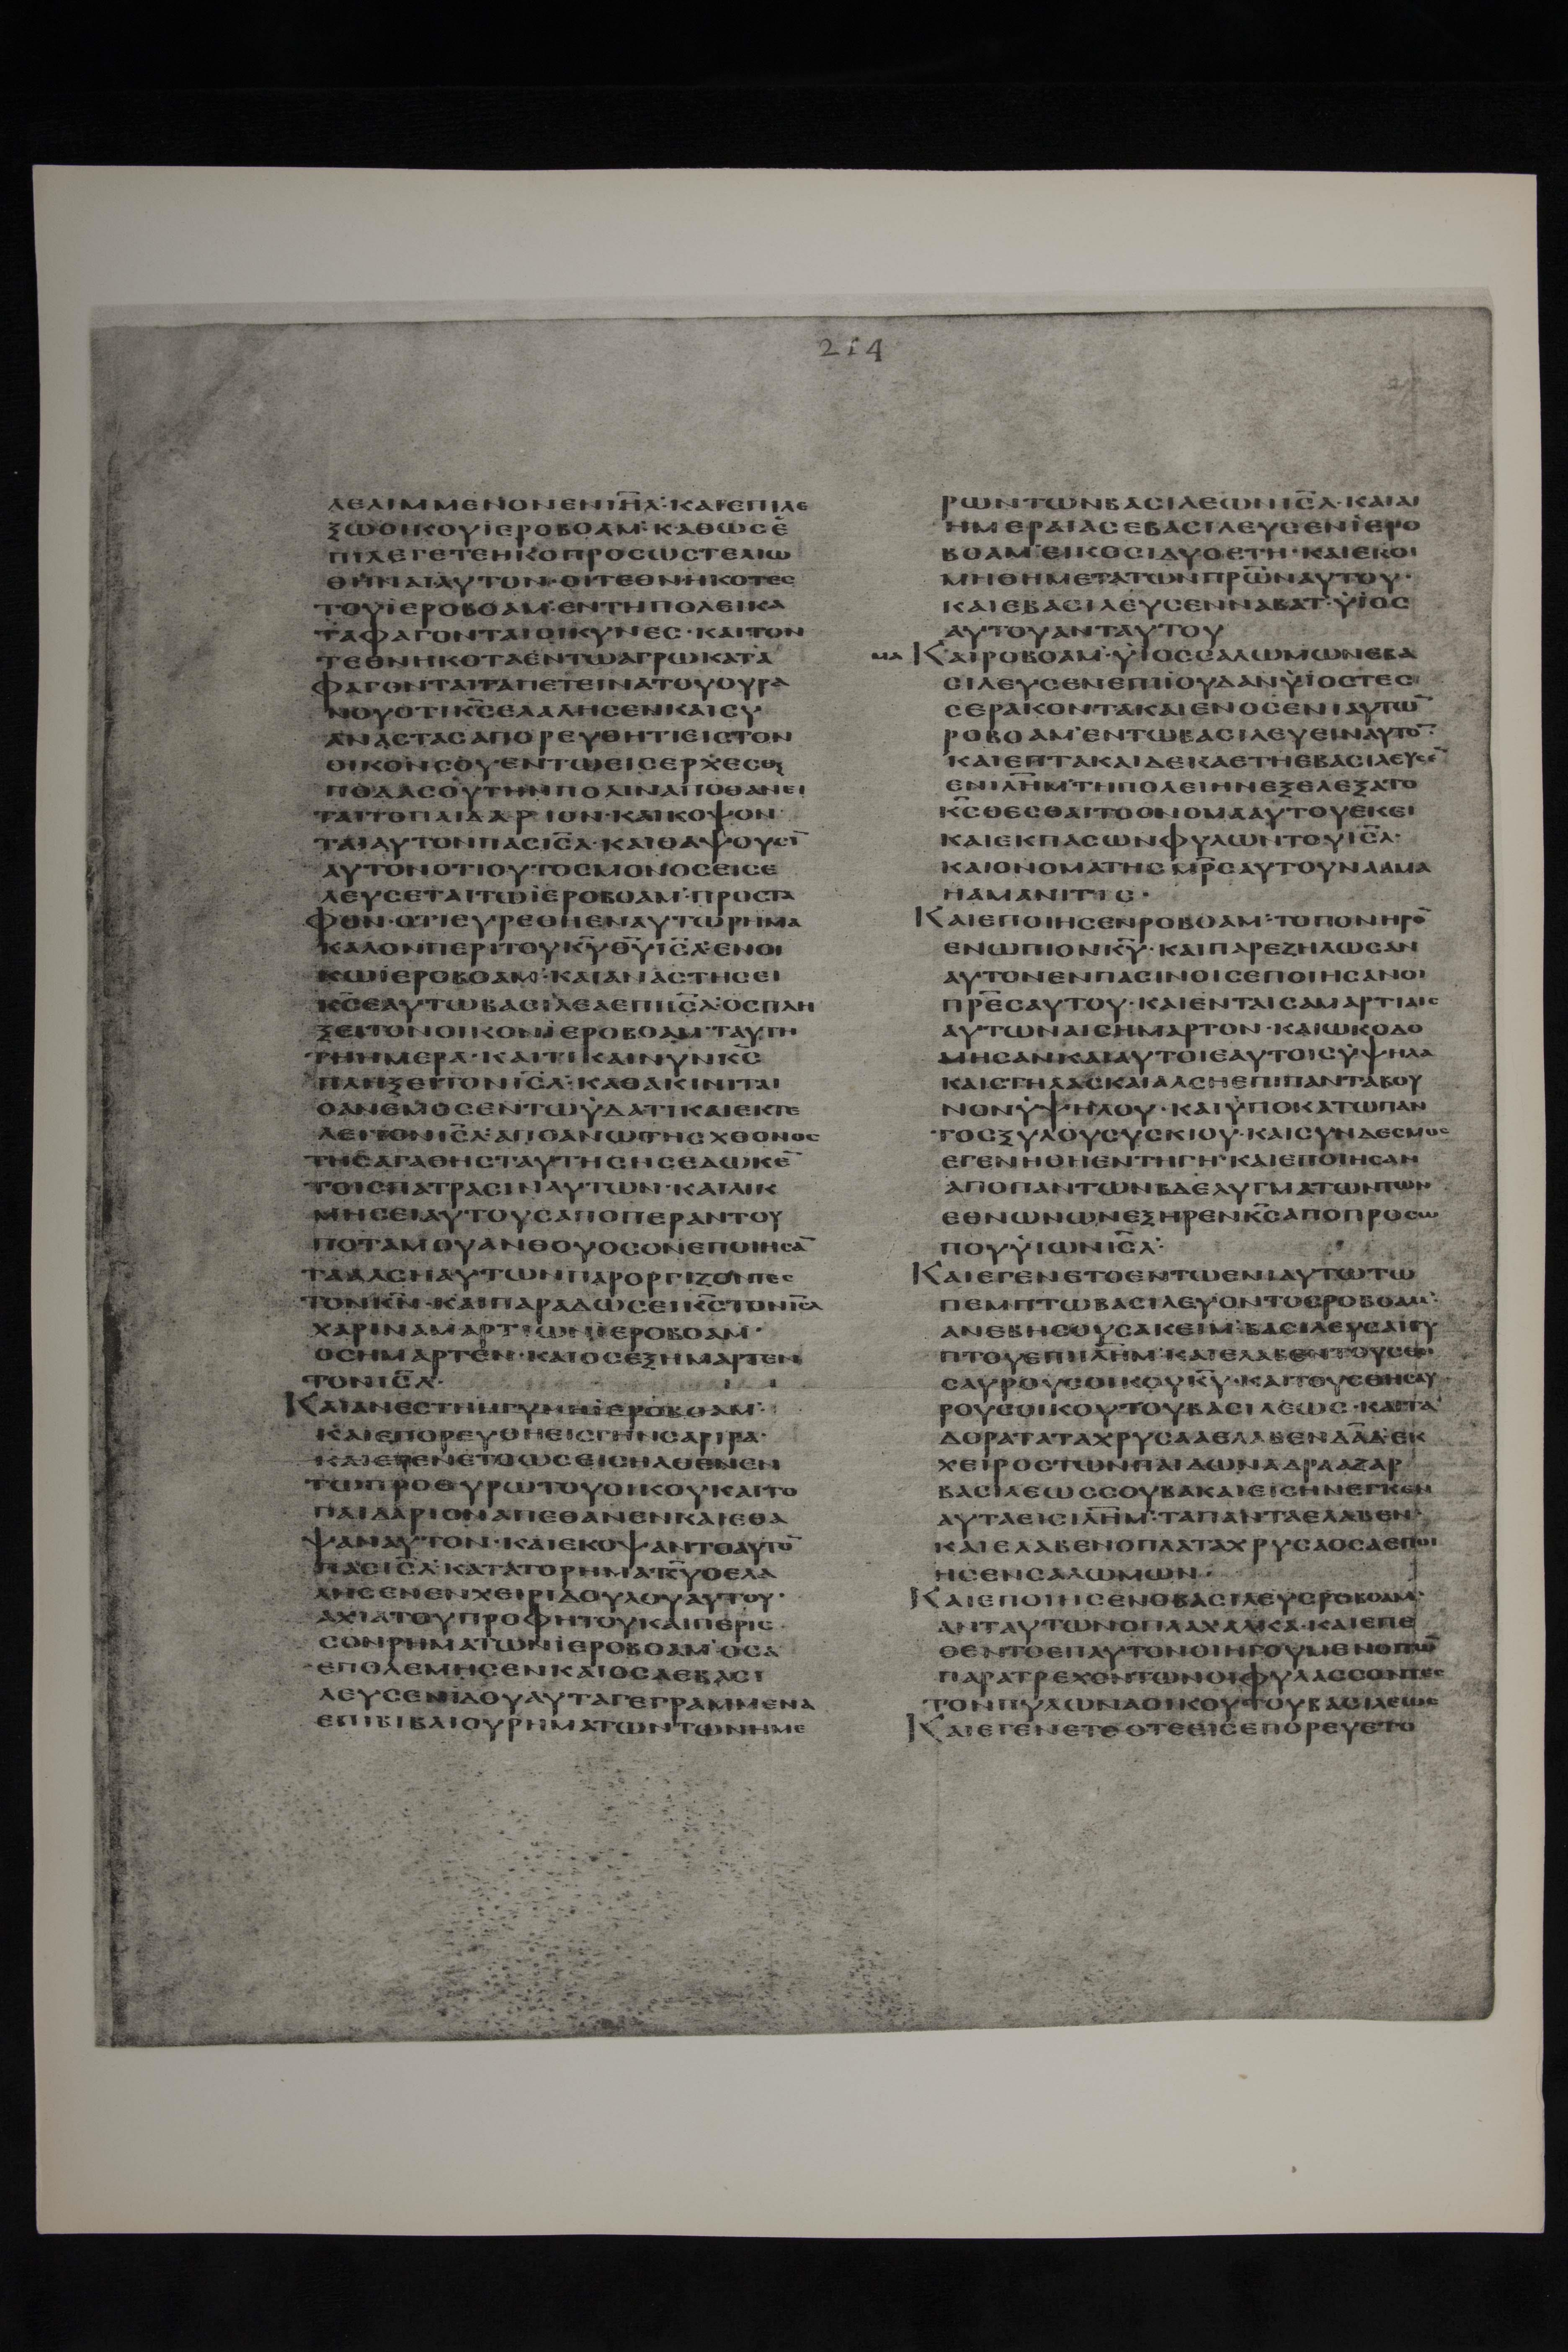 214
λελιμμενονενιη̅λ·καιεπιλε
ξωοικουϊεροβοαμ·καθωσε
πιλεγετεηκοπροσωστελιω
θηναιαυτον·οιτεθνηκοτες
τουϊεροβοαμ·εντηπολεικα
ταφαγονταιοικυνες·καιτον
τεθνηκοταεντωαγρωκατα
φαγονταιταπετεινατουουρα
νουοτικ̅σ̅ελαλησενκαισυ
αναστασαπορευθητιειστον
οικονσουεντωεισερχεσθαι
ποδασουτηνπολιναποθανει
ταιτοπαιδαριον·καικοψον
ταιαυτονπασισ̅λ·καιθαψουσῑ
αυτονοτιουτοσμονοσεισε
λευσεταιτωϊεροβοαμ·προστα
φον·οτιευρεθηεναυτωρημα
καλονπεριτουκ̅υ̅θ̅υ̅ισ̅λ·ενοι
κωϊεροβοαμ·καιαναστησει
κ̅σ̅εαυτωβασιλεαεπιισ̅λ·οσπλη
ξειτονοικονϊεροβοαμ·ταυτη
τηημερα·καιτικαινυνκ̅σ̅
πληξειτονισ̅λ·καθακινιται
οανεμοσεντωϋδατικαιεκτε
λειτονισ̅λ·αποανωτησχθονος
τησαγαθησταυτησησεδωκε̅
τοισπατρασιναυτων·καιλικ
μησειαυτουσαποπεραντου
ποταμουανθουοσονεποιησα̅
τααλσηαυτωνπαροργιζοντες
τονκ̅ν̅·καιπαραδωσεικ̅σ̅τονισ̅λ
χαριναμαρτιωνϊεροβοαμ·
οσημαρτεν·καιοσεξημαρτεν
τονισ̅λ·
Καιανεστηηγυνηϊεροβοαμ·
καιεπορευθηεισγηνσαριρα·
καιεγενετοωσεισηλθενεν
τωπροθυρωτουοικουκαιτο
παιδαριοναπεθανενκαιεθα
ψαναυτον·καιεκοψαντοαυτο̅
πασισ̅λ·κατατορημακ̅υ̅οελα
λησενενχειριδουλουαυτου·
αχιατουπροφητουκαιπερισ
σονρηματωνϊεροβοαμ·οσα
επολεμησενκαιοσαεβασι
λευσενϊδουαυταγεγραμμενα
επιβιβλιουρηματωντωνημε
ρωντωνβασιλεωνισ̅λ·καιαι
ημεραιασεβασιλευσενϊερο
βοαμ·εικοσιδυοετη·καιεκοι
μηθημετατωνπρ̅ω̅ναυτου·
καιεβασιλευσενναβατ·ϋϊος
αυτουανταυτου
μα Καιροβοαμ·ϋϊοσσαλωμωνεβα
σιλευσενεπιϊουδανϋϊοστεσ
σερακοντακαιενοσενιαυτω̅
ροβοαμ·εντωβασιλευειναυτο̅·
καιεπτακαιδεκαετηεβασιλευσε̅
ενιλ̅η̅μ·τηπολειηνεξελεξατο
κ̅σ̅θεσθαιτοονομααυτουεκει
καιεκπασωνφυλωντουισ̅λ·
καιονοματησμ̅ρ̅σαυτουνααμα
ηαμανιτις·
Καιεποιησενροβοαμ·τοπονηρο̅
ενωπιονκ̅υ̅·καιπαρεζηλωσαν
αυτονενπασινοισεποιησανοι
πρ̅ε̅σαυτου·καιενταισαμαρτιαις
αυτωναισημαρτον·καιωκοδο
μησανκαιαυτοιεαυτοισϋψηλα
καιστηλασκαιαλσηεπιπανταβου
νονϋψηλου·καιϋποκατωπαν
τοσξυλουσυσκιου·καισυνδεσμος
εγενηθηεντηγη·καιεποιησαν
αποπαντωνβδελυγματωντων
εθνωνωνεξηρενκ̅σ̅αποπροσω
πουϋϊωνισ̅λ·
Καιεγενετοεντωενιαυτωτω
πεμπτωβασιλευοντοσροβοαμ·
ανεβησουσακειμ·βασιλευσαιγυ
πτουεπιιλ̅η̅μ·καιελαβεντουσθη
σαυρουσοικουκ̅υ̅·καιτουσθησαυ
ρουσοικουτουβασιλεως·καιτα
δοραταταχρυσααελαβενδα̅δ·εκ
χειροστωνπαιδωναδρααζαρ
βασιλεωσσουβακαιεισηνεγκεν
αυταεισιλ̅η̅μ·ταπανταελαβεν·
καιελαβενοπλαταχρυσαοσαεποι
ησενσαλωμων·
Καιεποιησενοβασιλευσροβοαμ·
ανταυτωνοπλαχαλκα·καιεπε
θεντοεπαυτονοιηγουμενοιτω̅
παρατρεχοντωνοιφυλασσοντες
τονπυλωναοικουτουβασιλεως
Καιεγενετοοτεεισεπορευετο